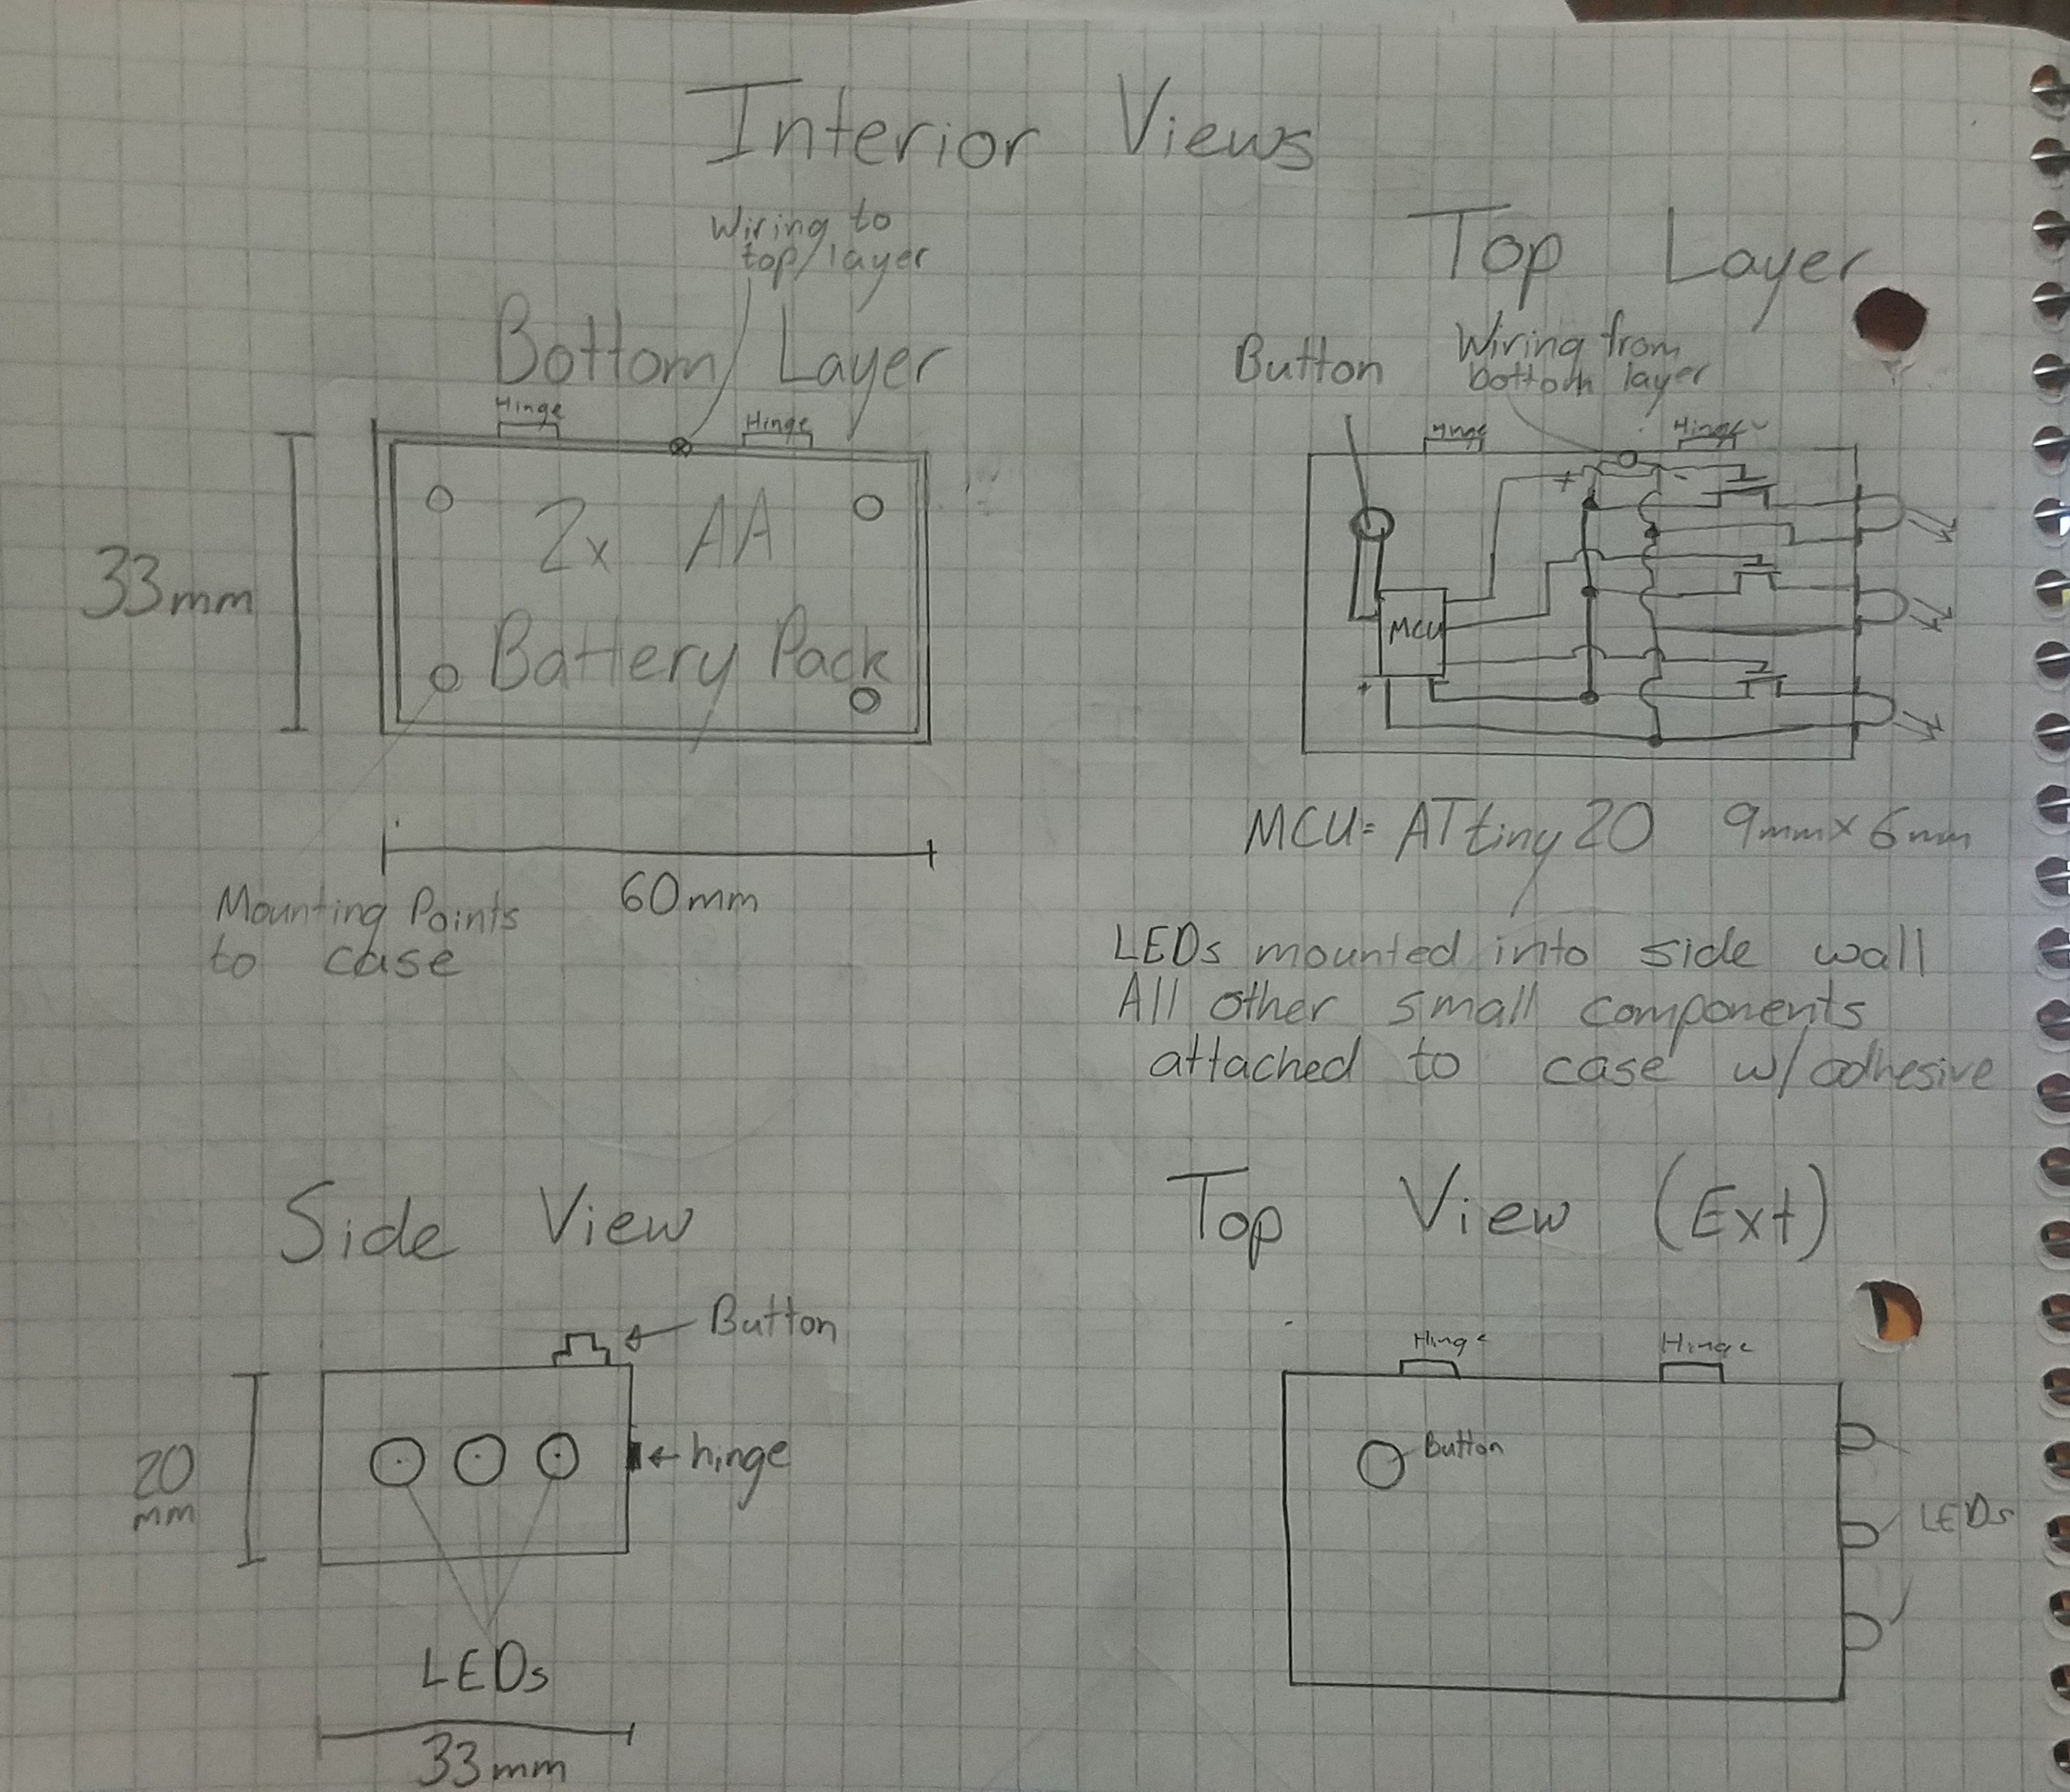 Interior Views
Wiring to
top layer
Bottom Layer
Hinge
Hinge
33mm
2x AA
Battery Pack
60mm
Mounting Points
to case
Top Layer
Button
Wiring from
bottom layer
Hinge
Hinge
+
-
MCU
+
MCU= ATtiny 20 9mm x 6mm
LEDs mounted into side wall
All other small components
attached to case w/ adhesive
Side View
Button
20
mm
hinge
LEDs
33mm
Top View (Ext)
Hinge
Hinge
Button
LEDs